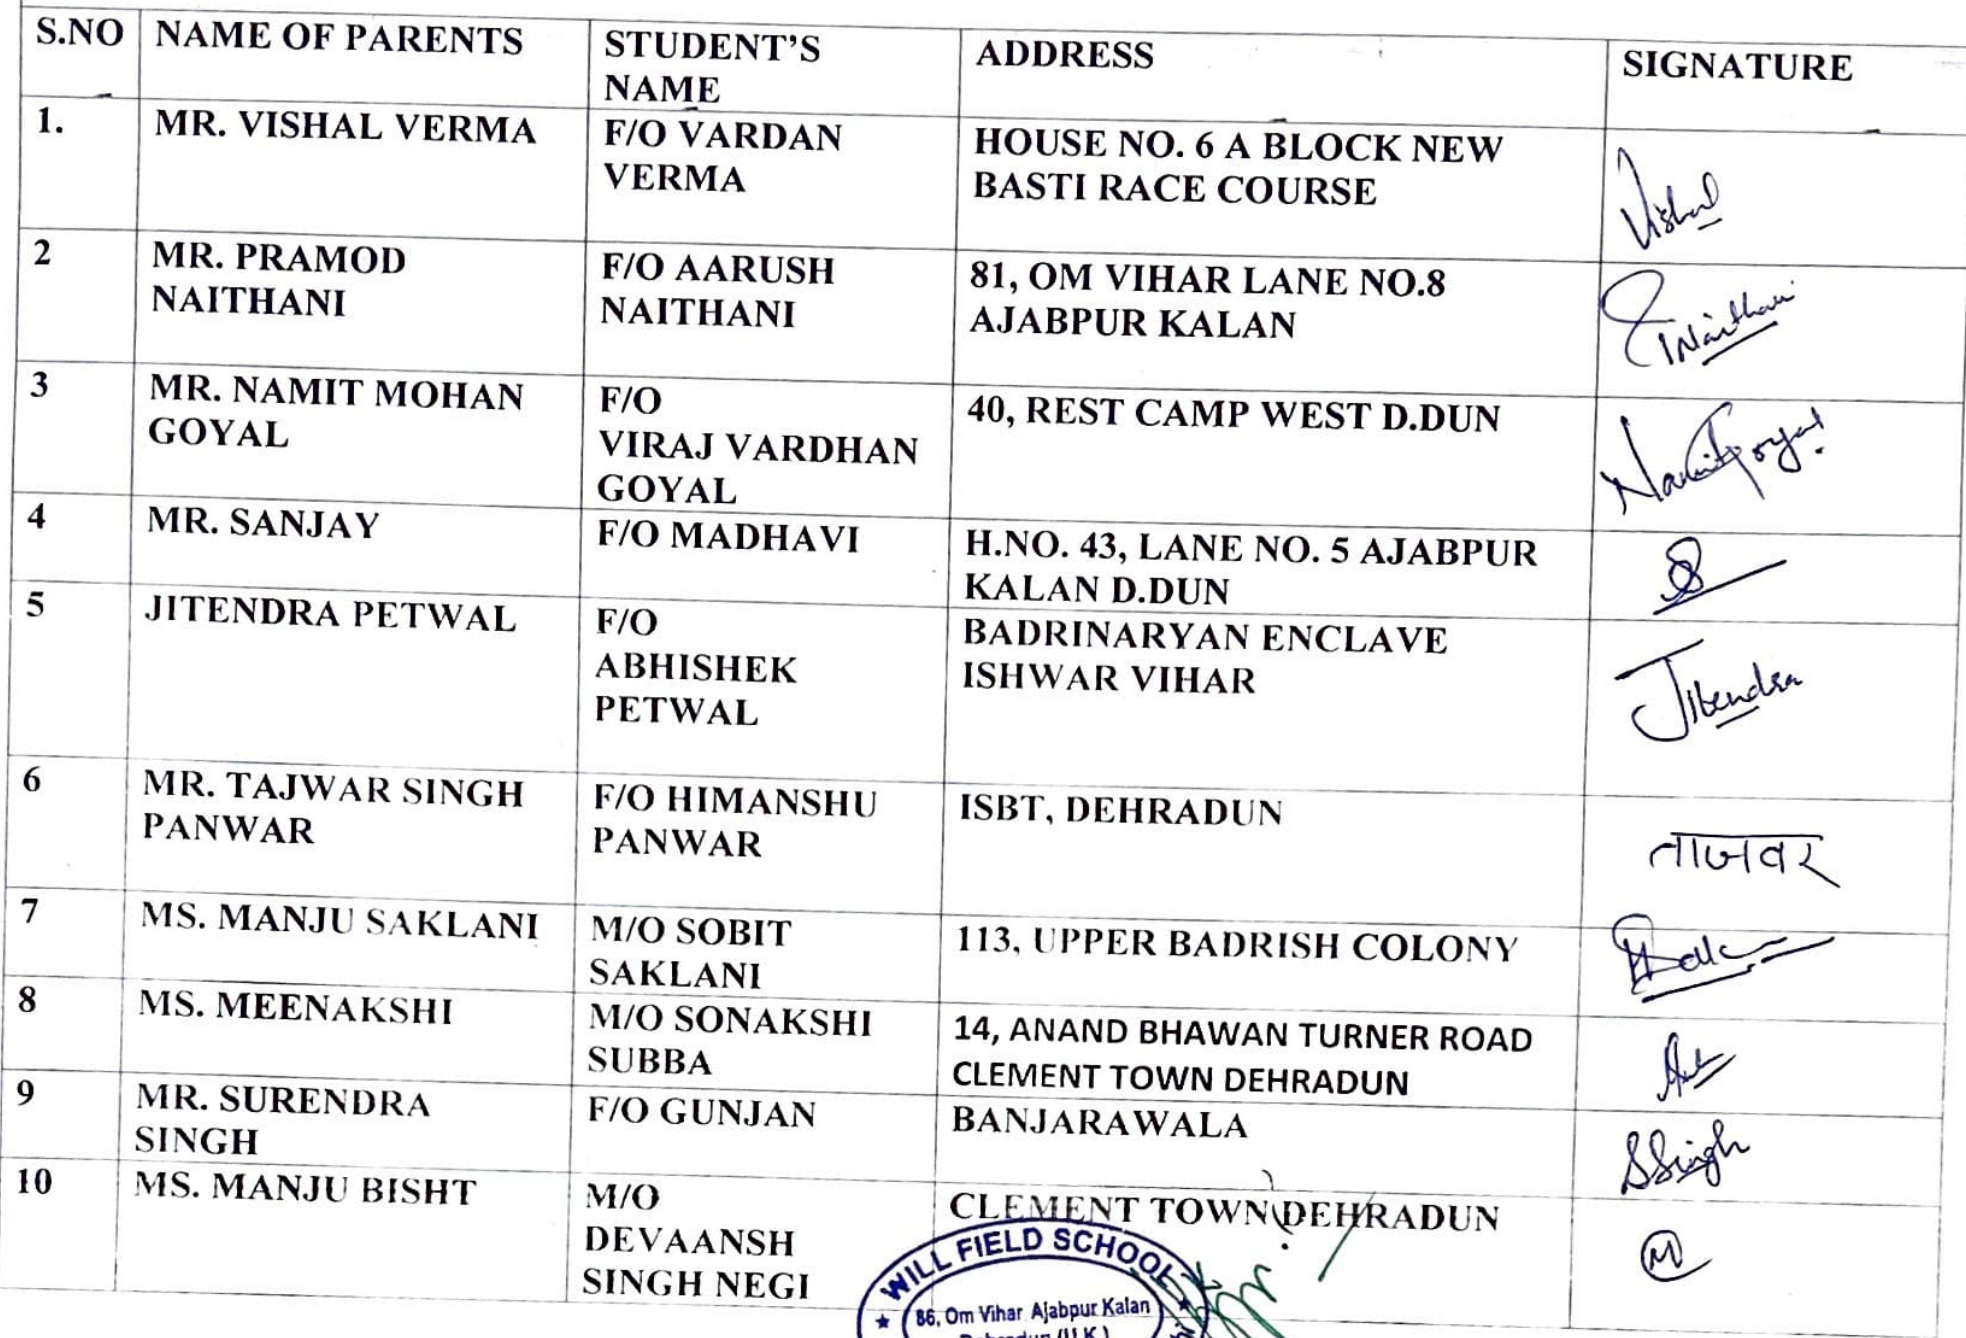 S.NO NAME OF PARENTS STUDENT'S NAME ADDRESS SIGNATURE
1. MR. VISHAL VERMA F/O VARDAN VERMA HOUSE NO. 6 A BLOCK NEW BASTI RACE COURSE Vishal
2 MR. PRAMOD NAITHANI F/O AARUSH NAITHANI 81, OM VIHAR LANE NO.8 AJABPUR KALAN Naithani
3 MR. NAMIT MOHAN GOYAL F/O VIRAJ VARDHAN GOYAL 40, REST CAMP WEST D.DUN Namit Goyal
4 MR. SANJAY F/O MADHAVI H.NO. 43, LANE NO. 5 AJABPUR KALAN D.DUN
5 JITENDRA PETWAL F/O ABHISHEK PETWAL BADRINARYAN ENCLAVE ISHWAR VIHAR Jitendra
6 MR. TAJWAR SINGH PANWAR F/O HIMANSHU PANWAR ISBT, DEHRADUN ताजवर
7 MS. MANJU SAKLANI M/O SOBIT SAKLANI 113, UPPER BADRISH COLONY
8 MS. MEENAKSHI M/O SONAKSHI SUBBA 14, ANAND BHAWAN TURNER ROAD CLEMENT TOWN DEHRADUN
9 MR. SURENDRA SINGH F/O GUNJAN BANJARAWALA SSingh
10 MS. MANJU BISHT M/O DEVAANSH SINGH NEGI CLEMENT TOWN DEHRADUN M
WILL FIELD SCHOOL
86, Om Vihar Ajabpur Kalan
Dehradun (U.K.)